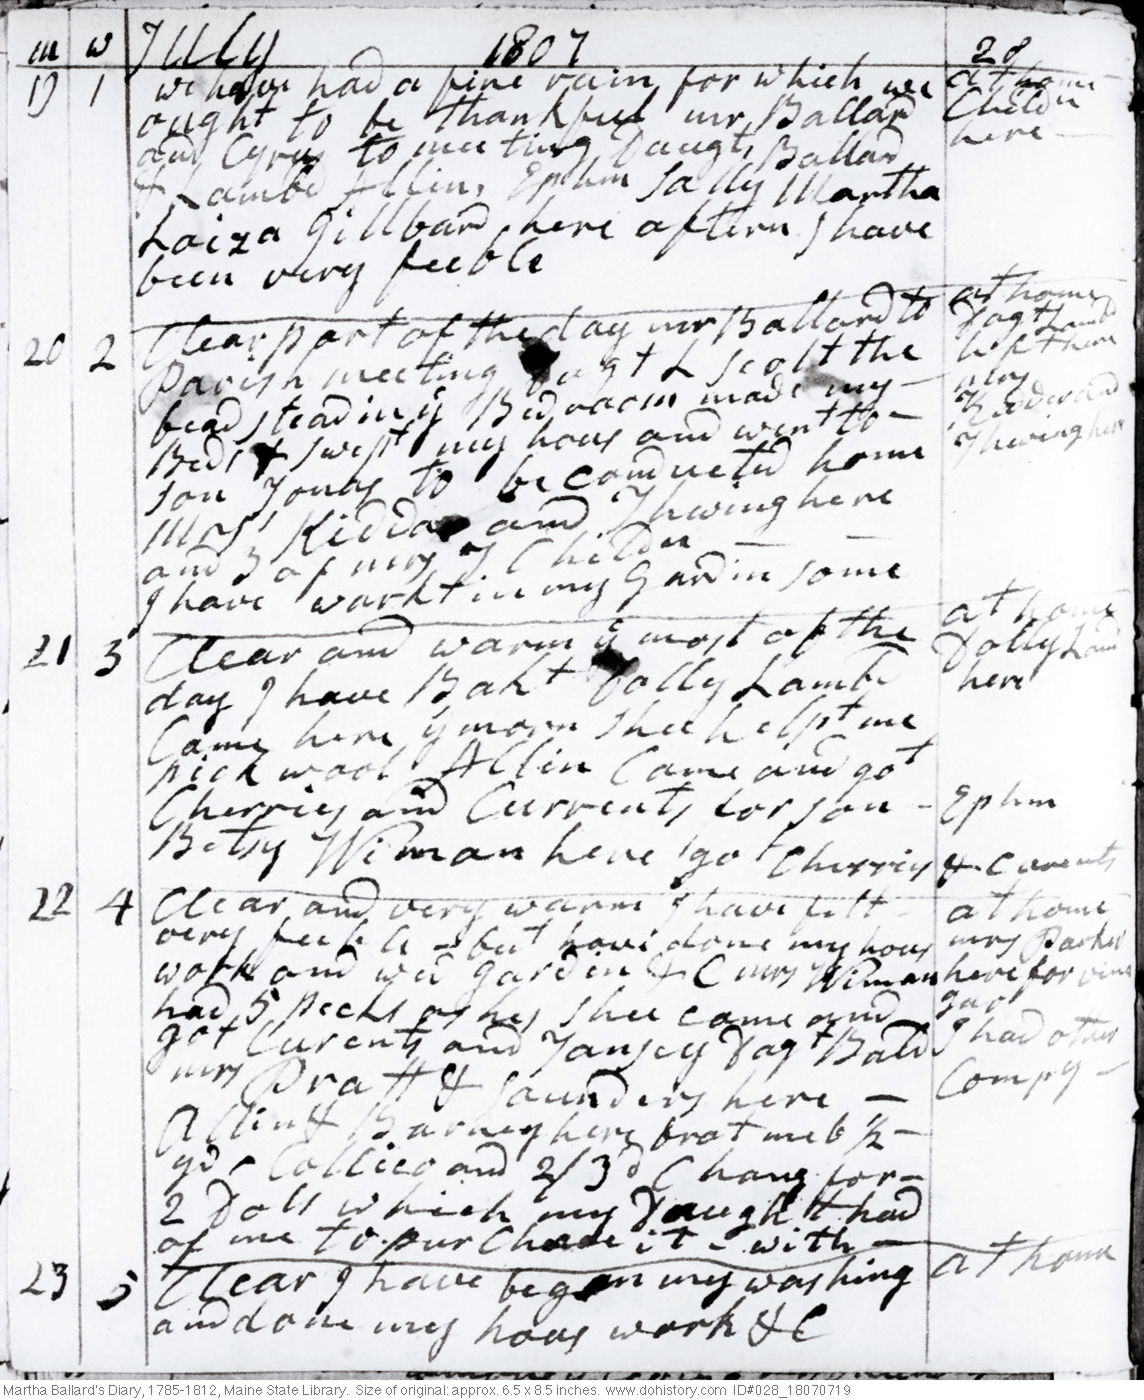 m w July 1807 28
19 1 we have had a fine rain for which we at home
ought to be thankful mr Ballard Childn
and Cyrus to meeting Daught Ballard here
& Lambd Allin, Ephm Sally Martha
Loiza Gillbard here aftern I have
been very feeble
20 2 Clear part of the day mr Ballard to at home
Parish meeting Dagt L scolt the Dagt Lambd
bead stead in ye Bedroom made my left here
Beds & swept my hous and went to mrs
son Jonas to be conducted home Kidder and
mrs Kidder and Thwing here Thwing here
and 3 of mrs T Childn
I have workt in my Gardin some
21 3 Clear and warm ye most of the at home
day I have Bakt Dolly Lambd Dolly Lamb
Came here ye morn shee helpt me here
pick wool Allin Came and got
Cherries and Currents for son - Ephm
Betsy Wiman here got Cherries & Curents
22 4 Clear and very warm I have felt at home
very feeble - but have done my hous mrs Parker
work and wed gardin & C mrs Wiman here for vine
had 5 Pecks ashes shee came and gar
got Curents and Tansey Dagt Bald I had other
mrs Pratt & Saunders here - Compy -
Allin & Barney here brot me 6 ½ -
yd Collico and 2/3d Chang for -
2 Dolls which my Daught had
of me to purchase it - with -
23 5 Clear I have began my washing at home
and done my hous work & C
Martha Ballard's Diary, 1785-1812, Maine State Library. Size of original: approx. 6.5 x 8.5 inches. www.dohistory.com ID#028_18070719